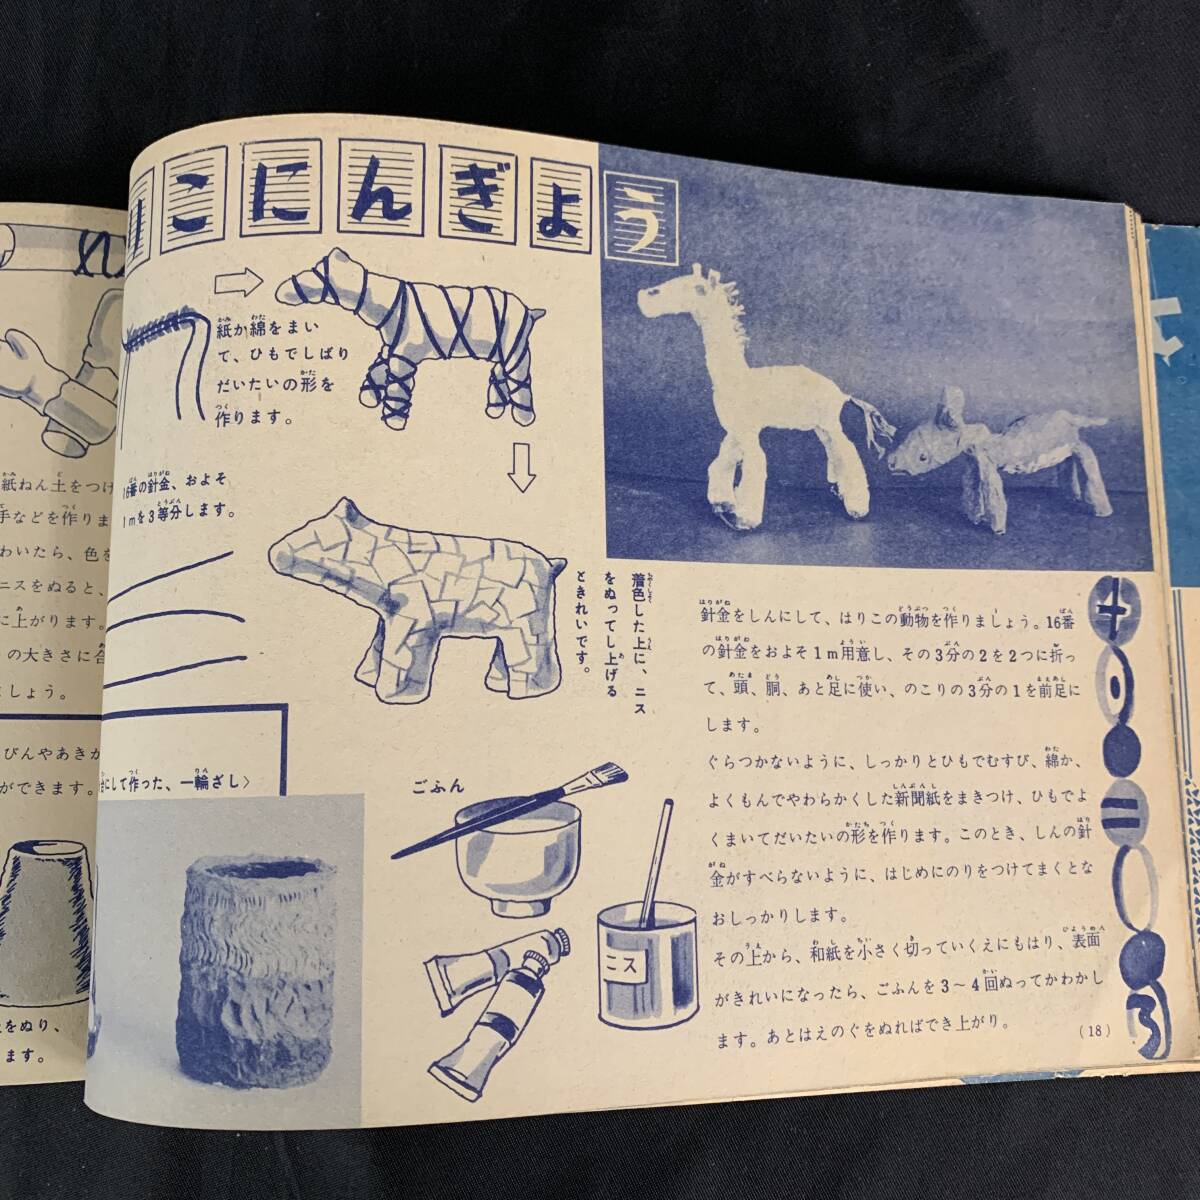 りこにんぎょう
紙か綿をまい
て、ひもでしばり
だいたいの形を
作ります。
16番の針金、およそ
1mを3等分します。
着色した上に、ニス
をぬってし上げる
ときれいです。
針金をしんにして、はりこの動物を作りましょう。16番
の針金をおよそ1m用意し、その3分の2を2つに折っ
て、頭、胴、あと足に使い、のこりの3分の1を前足に
します。
ぐらつかないように、しっかりとひもでむすび、綿か、
よくもんでやわらかくした新聞紙をまきつけ、ひもでよ
くまいてだいたいの形を作ります。このとき、しんの針
金がすべらないように、はじめにのりをつけてまくとな
おしっかりします。
その上から、和紙を小さく切っていくえにもはり、表面
がきれいになったら、ごふんを3〜4回ぬってかわかし
ます。あとはえのぐをぬればでき上がり。
(18)
にして作った、一輪ざし〉
ごふん
ニス
紙ねん土をつけ
手などを作りま
わいたら、色を
ニスをぬると、
に上がります。
の大きさに合
しょう。
びんやあきか
ができます。
をぬり、
ます。